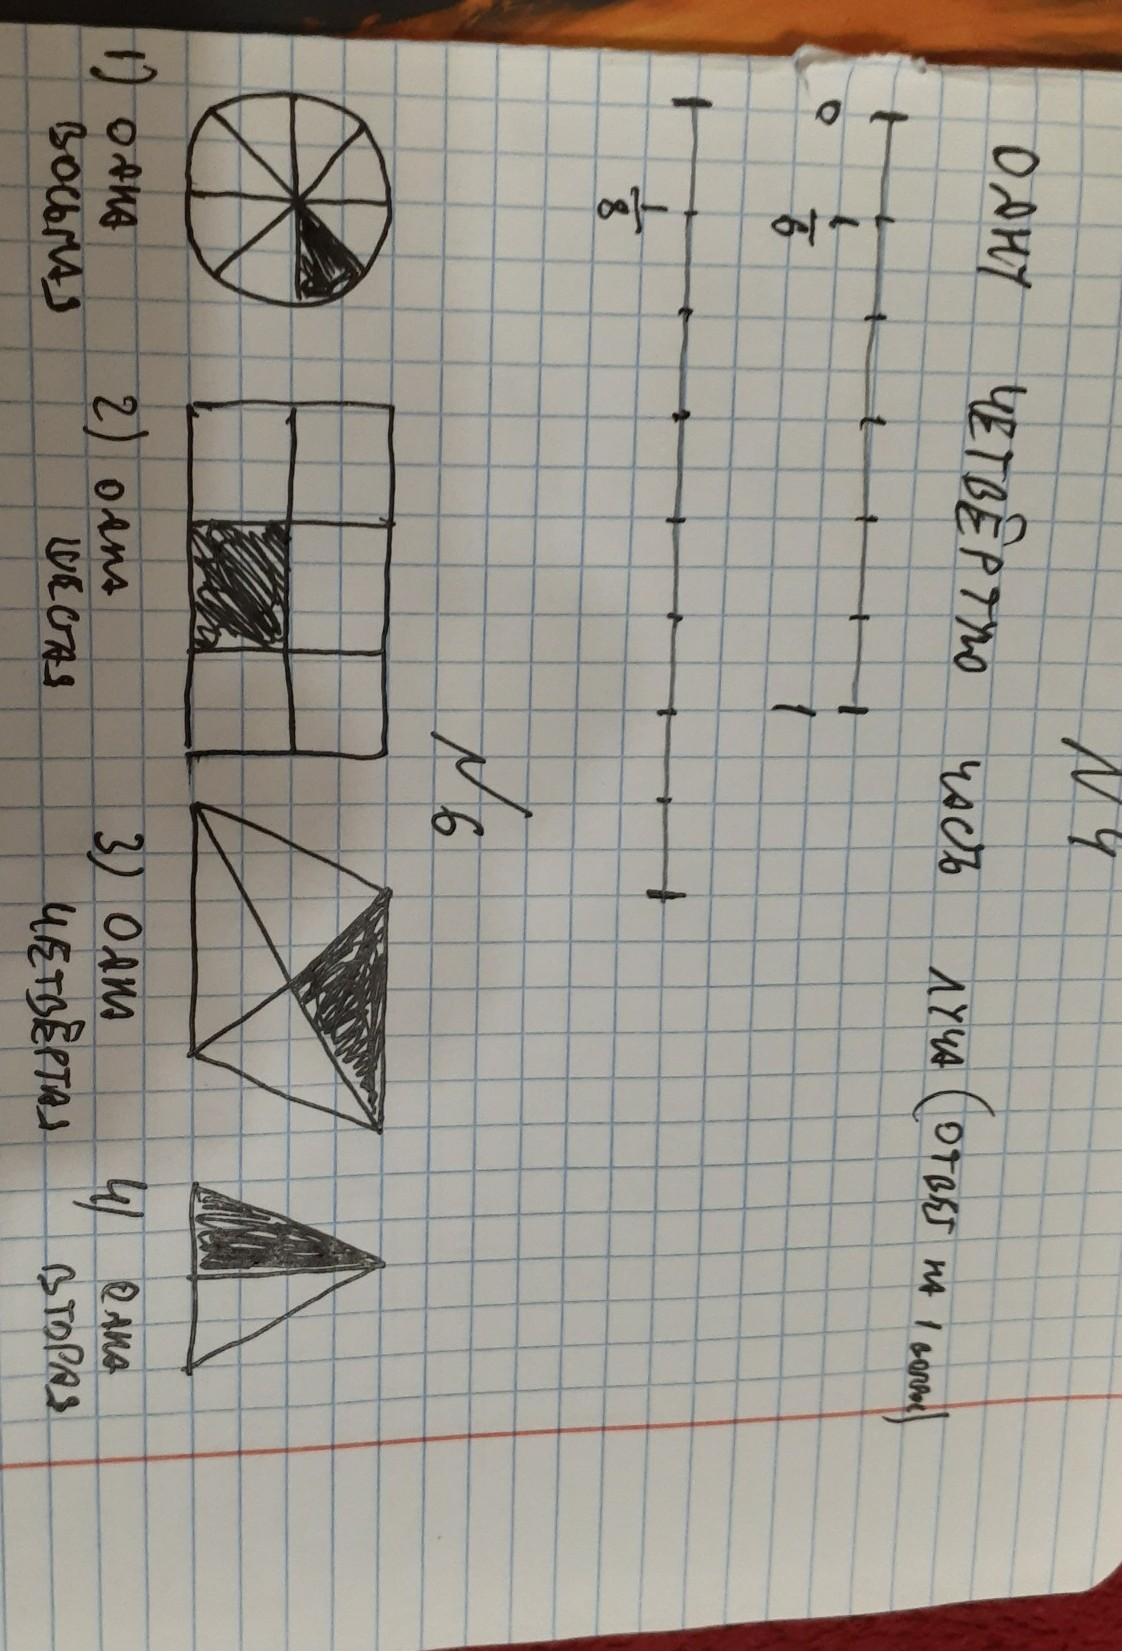 N 4
ОДНУ ЧЕТВЁРТУЮ ЧАСТЬ ЛУЧА (ОТВЕТ НА 1 вопрос)
0 1/6 1
1/8
N 6
1) ОДНА ВОСЬМАЯ 2) ОДНА ШЕСТАЯ 3) ОДНА ЧЕТВЁРТАЯ 4) ОДНА ВТОРАЯ